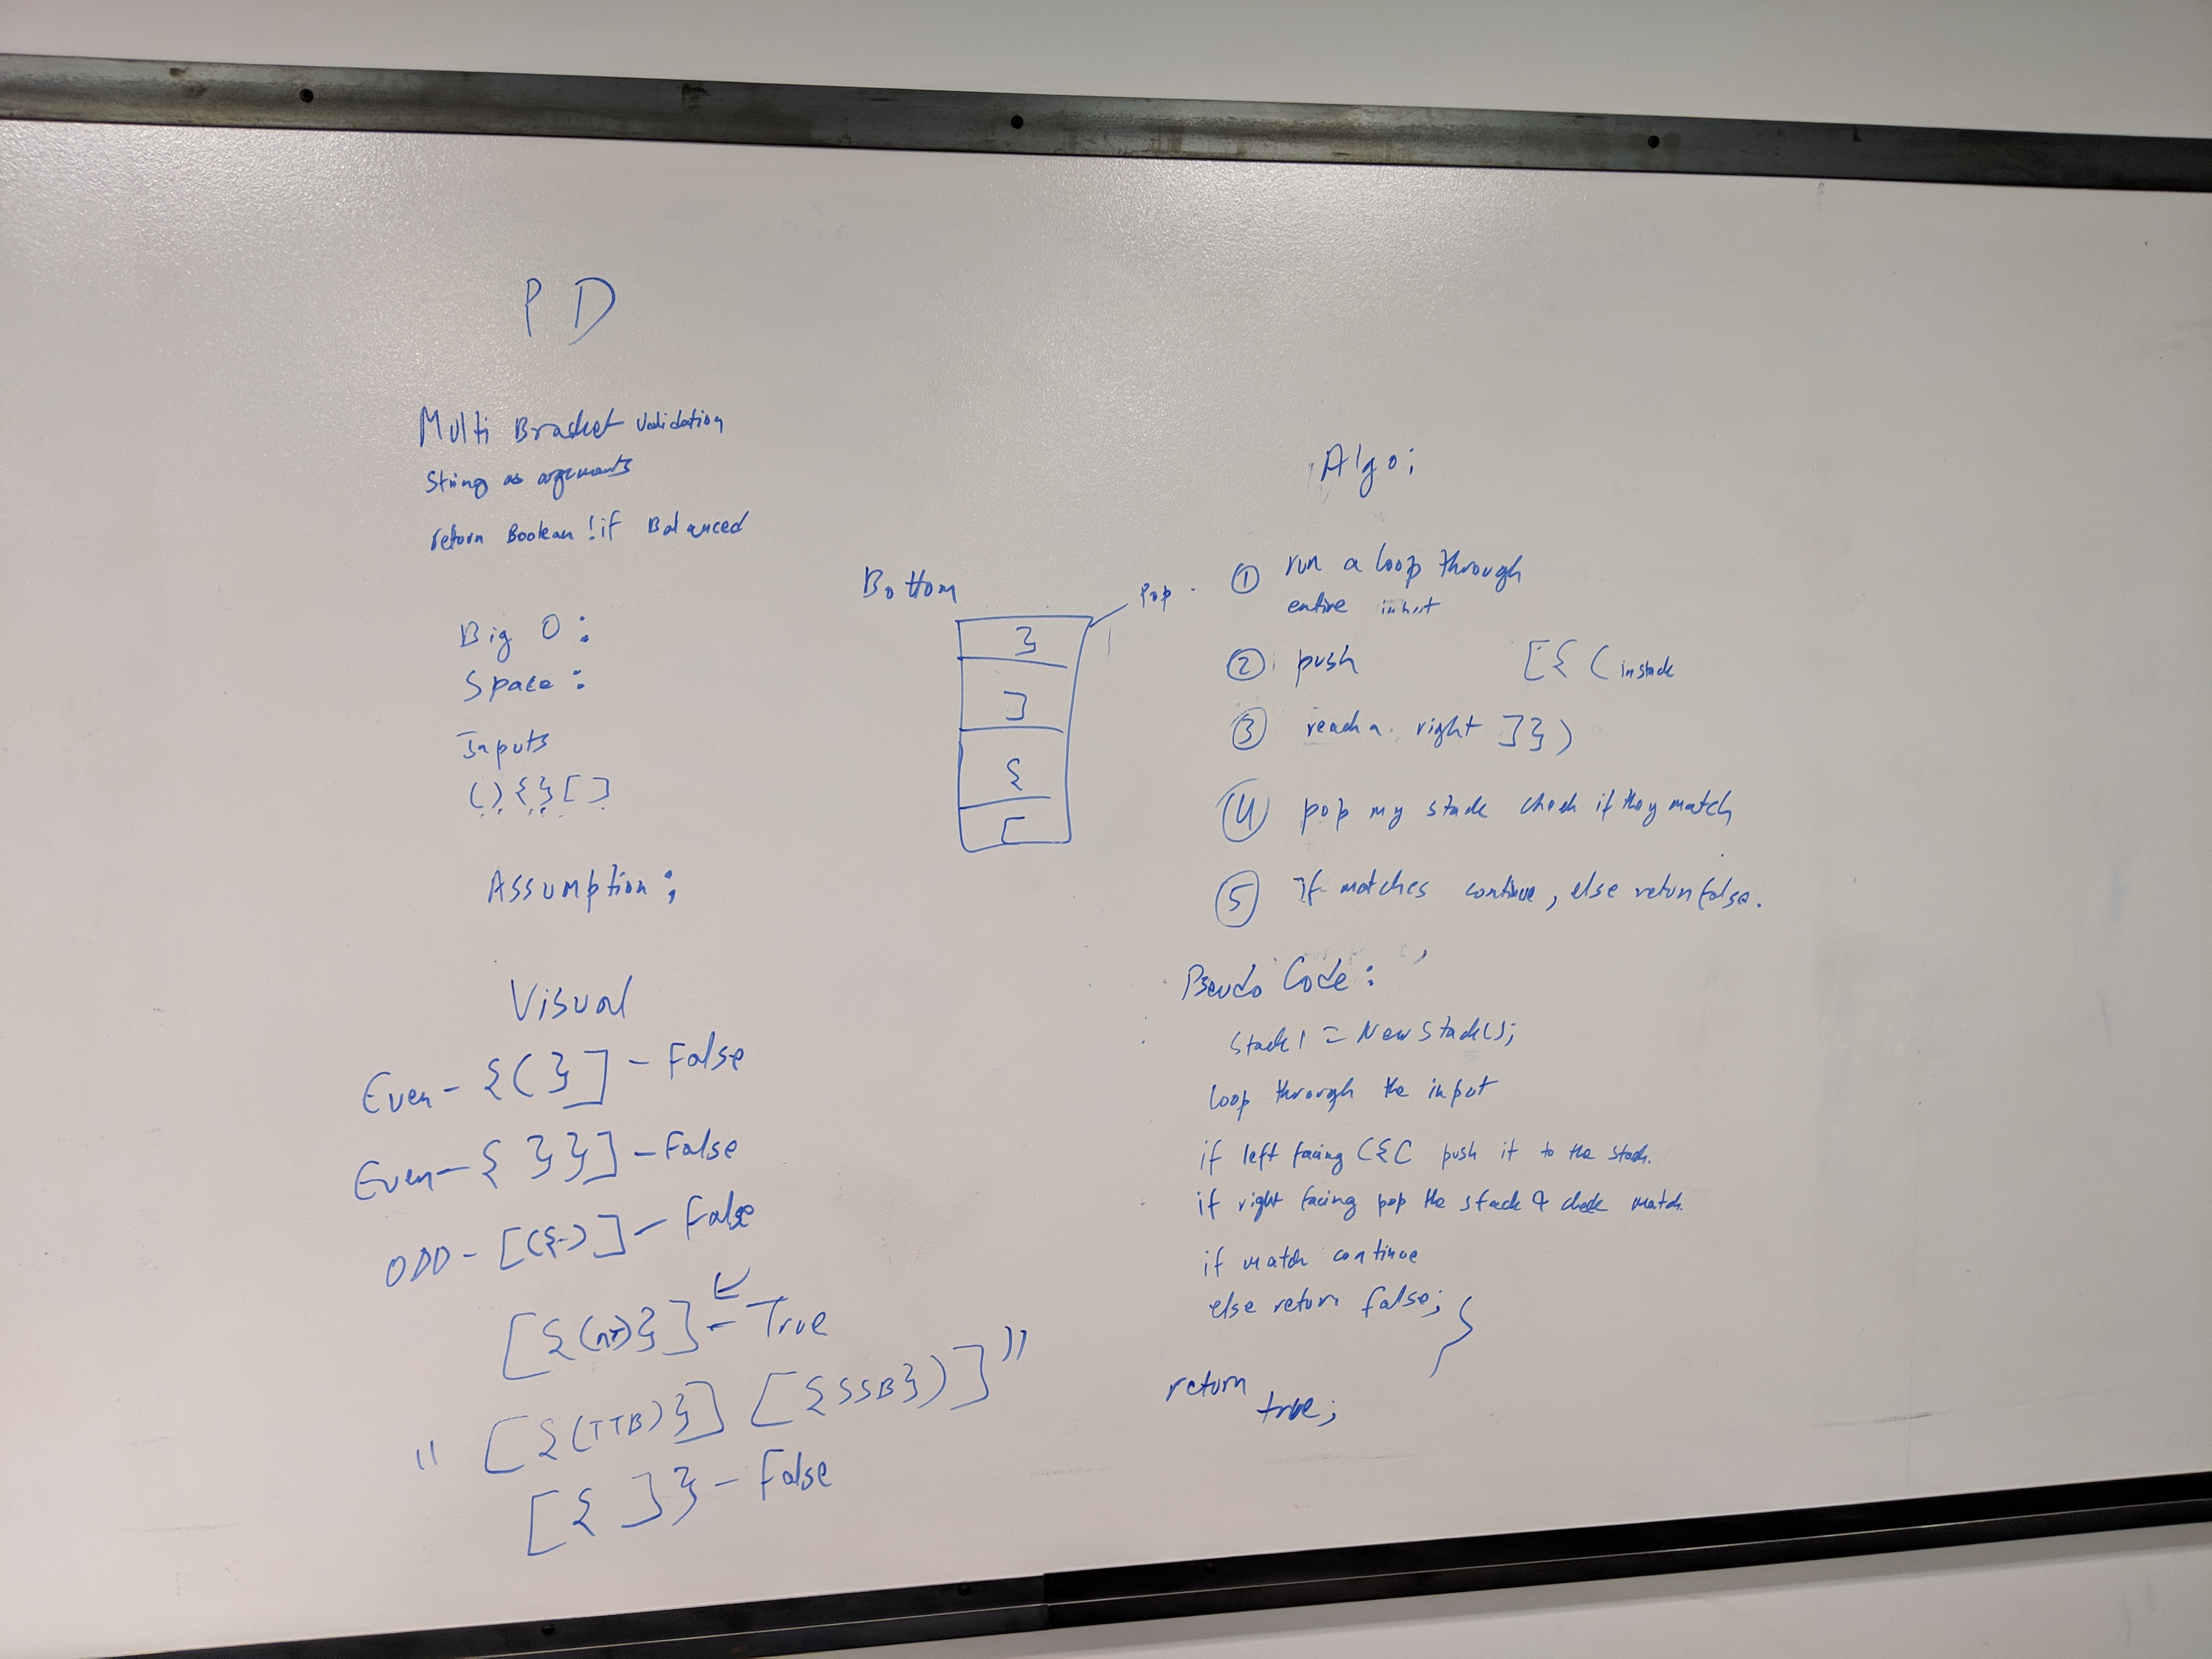 PD
Multi Bracket Validation
String as arguments
return Boolean !if Balanced
Big O :
Space :
Inputs
() {} []
Assumption ;
Visual
Even - {(}] - False
Even - { }}] - False
ODD - [({-)] - False
[{( )}] - True
" [{(TTB)}] [{SSB})] "
[{ ]} - False
Bottom
Pop
}
]
{
[
Algo ;
① run a loop through
entire input
② push [{( in stack
③ reach a right ]})
④ pop my stack check if they match
⑤ If matches continue, else return false.
Pseudo Code :
Stack1 = New Stack();
loop through the input
if left facing ({( push it to the stack.
if right facing pop the stack & check match.
if match continue
else return false; }
return
true;